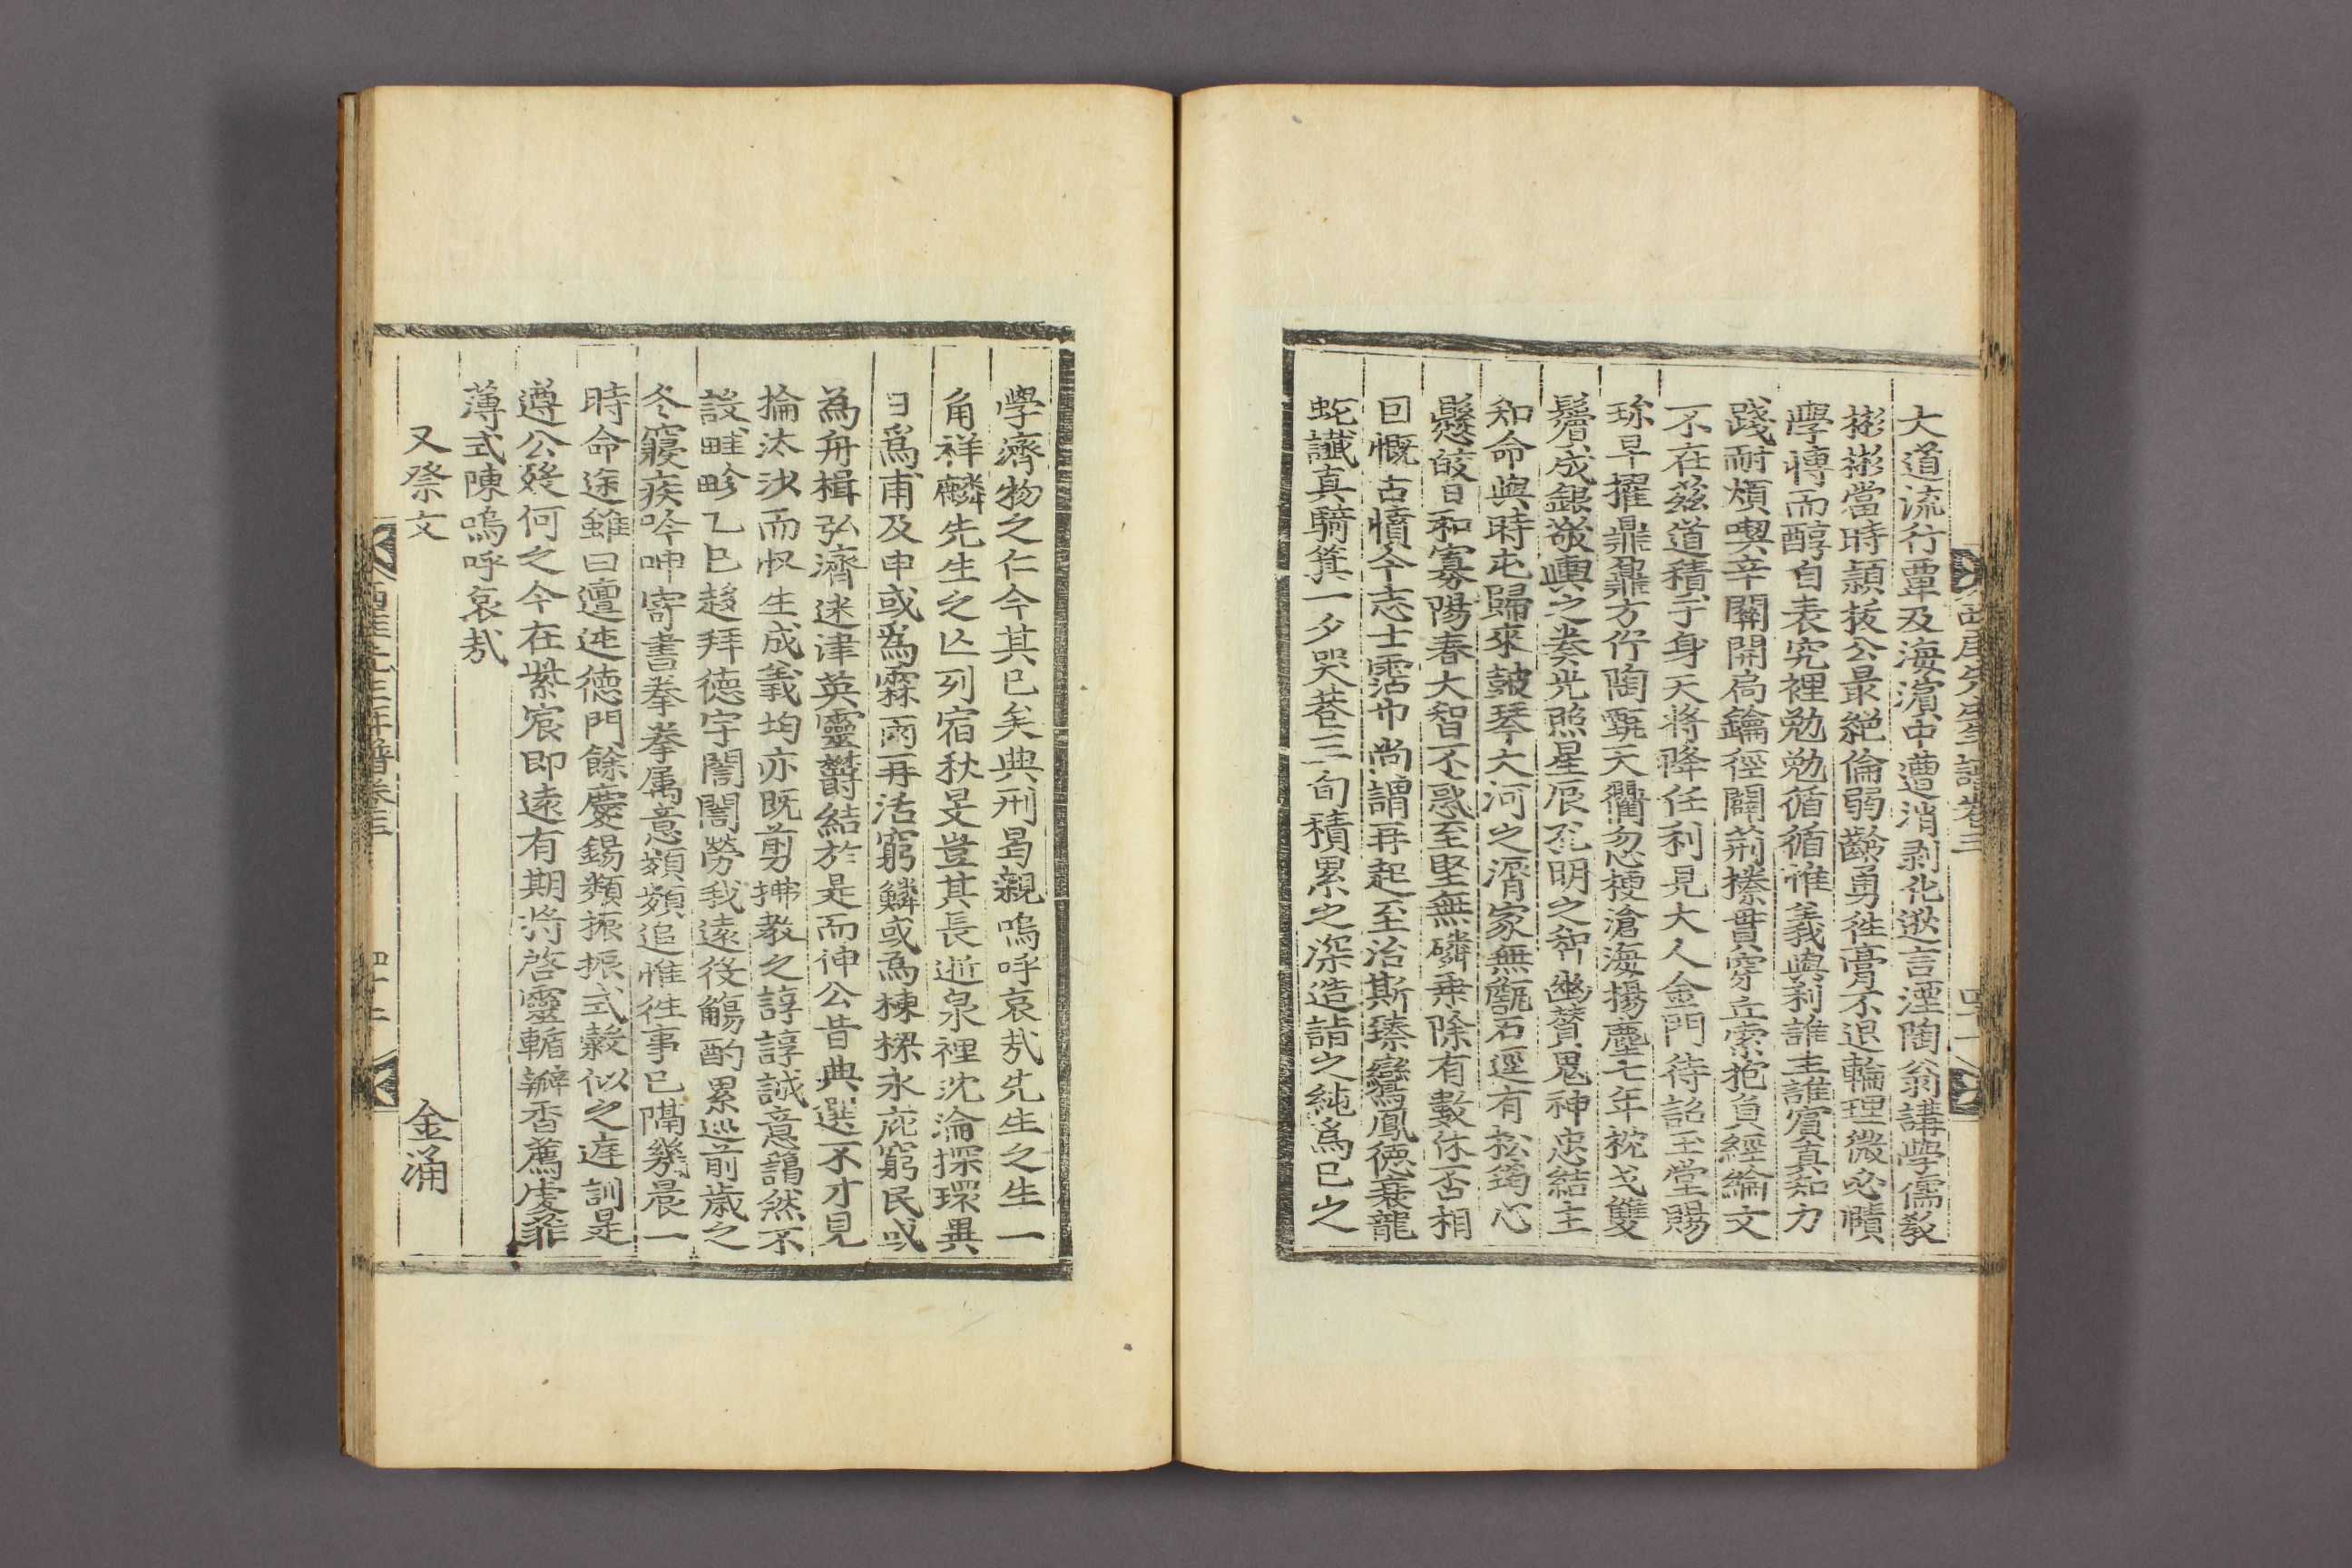 大道流行覃及海濵中遭消剥化逖言湮陶翁講學儒教
彬彬當時頴拔公最絶倫弱齡勇徃膏不退輪理微必賾
學慱而醇自表究裡勉勉循循惟義與利誰主誰賓真知力
踐耐煩喫辛關開扃鑰徑闢荊榛貫穿丘索抱負經綸文
不在茲道積于身天將降任利見大人金門待詔玉堂賜
珎早擢鼎鼐方佇陶甄天衢勿梗滄海揚塵七年枕戈雙
鬢成銀敬輿之奏光照星辰孔明之智幽賛鬼神忠結主
知命與時屯歸來皷琴大河之濱家無甔石逕有松筠心
懸皎日和寡陽春大智不惑至堅無磷乗除有數休否相
囙慨古憤今志士霑巾尚謂再起至治斯臻鸞鳳德衰龍
蛇讖真騎箕一夕哭巷三旬積累之深造詣之純爲已之
學濟物之仁今其已矣典刑曷親嗚呼哀㢤先生之生一
角祥麟先生之亾列宿秋旻豈其長逝泉裡沈淪探環異
日爲甫及申或爲霖雨再活窮鱗或爲棟樑永庇窮民或
為舟楫弘濟迷津英靈欝結於是而伸公昔典選不才見
掄汰沙而収生成義均亦既剪拂教之諄諄誠意藹然不
設畦畛乙巳趍拜德宇誾誾勞我遠役觴酌累巡前歳之
冬寢疾吟呻寄書拳拳属意頻頻追惟徃事已隔幾晨一
時命途雖曰邅迍德門餘慶錫類振振式糓似之庭訓是
遵公歿何之今在紫宸即遠有期將啓靈輴瓣香薦虔菲
薄式陳嗚呼哀㢤
又祭文
金涌
西厓先生年譜卷三
四十二